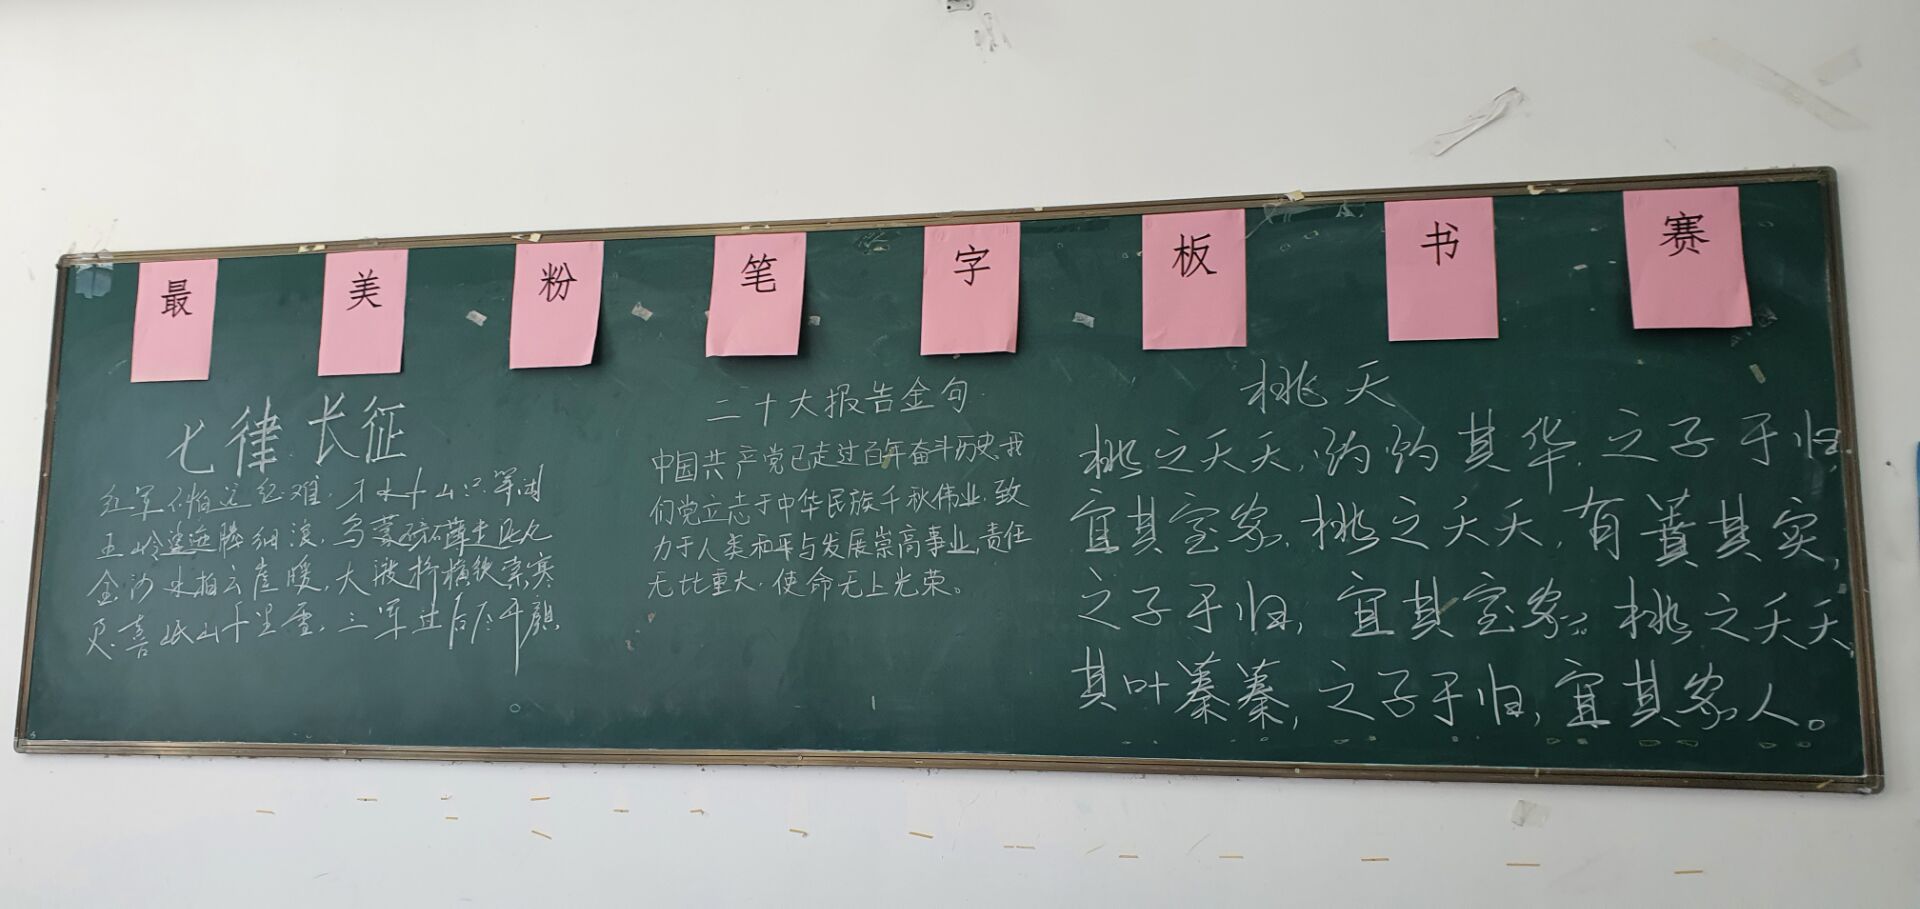 最美粉笔字板书赛
七律 长征
红军不怕远征难,万水千山只等闲
五岭逶迤腾细浪,乌蒙磅礴走泥丸
金沙水拍云崖暖,大渡桥横铁索寒
更喜岷山千里雪,三军过后尽开颜
二十大报告金句
中国共产党已走过百年奋斗历史,我
们党立志于中华民族千秋伟业,致
力于人类和平与发展崇高事业,责任
无比重大,使命无上光荣。
桃夭
桃之夭夭,灼灼其华,之子于归,
宜其室家,桃之夭夭,有蕡其实,
之子于归,宜其室家。桃之夭夭,
其叶蓁蓁,之子于归,宜其家人。